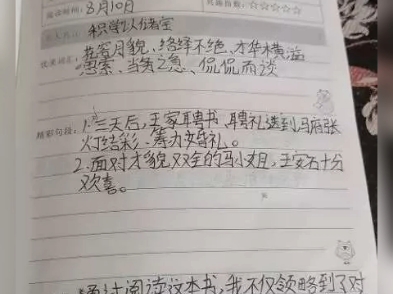 8月10日
积学以储宝
花容月貌、络绎不绝、才华横溢
思索、当务之急、侃侃而谈
精彩句段:1.三天后,王家聘书、聘礼送到马府张
灯结彩、筹办婚礼。
2.面对才貌双全的马小姐,王安石十分
欢喜。
通过阅读这本书,我不仅领略到了对